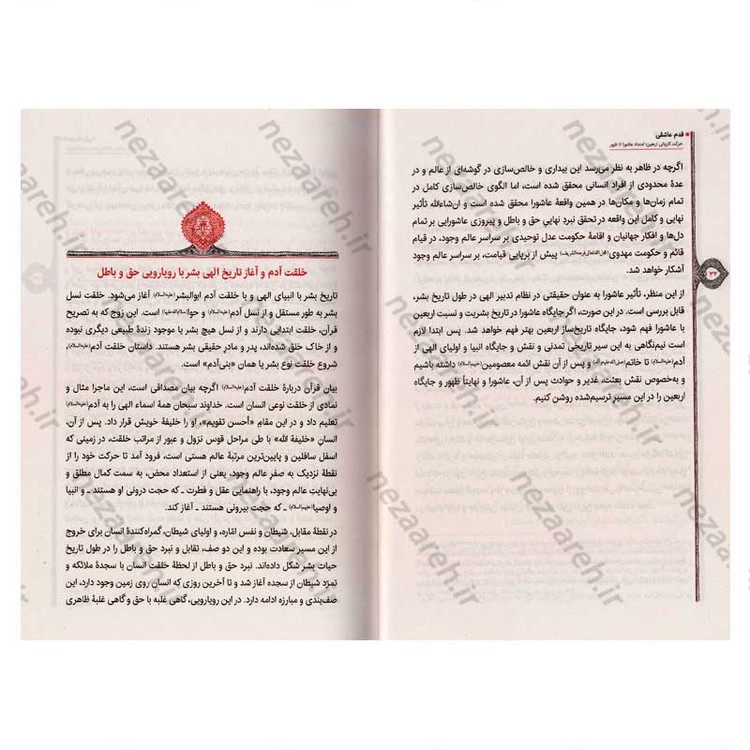 قدم عاشقی
حرکت کاروانی اربعین؛ امتداد عاشورا تا ظهور
اگرچه در ظاهر به نظر می‌رسد این بیداری و خالص‌سازی در گوشه‌ای از عالم و در
عدهٔ محدودی از افراد انسانی محقق شده است، اما الگوی خالص‌سازی کامل در
تمام زمان‌ها و مکان‌ها در همین واقعهٔ عاشورا محقق شده است و ان‌شاءالله تأثیر
نهایی و کامل این واقعه در تحقق نبرد نهایی حق و باطل و پیروزی عاشورایی بر تمام
دل‌ها و افکار جهانیان و اقامهٔ حکومت عدل توحیدی بر سراسر عالم وجود، در قیام
قائم و حکومت مهدوی پیش از برپایی قیامت، بر سراسر عالم وجود
آشکار خواهد شد.
از این منظر، تأثیر عاشورا به عنوان حقیقتی در نظام تدبیر الهی در طول تاریخ بشر،
قابل بررسی است. در این صورت، اگر جایگاه عاشورا در تاریخ بشریت و نسبت اربعین
با عاشورا فهم شود، جایگاه تاریخ‌ساز اربعین بهتر فهم خواهد شد. پس ابتدا لازم
است نیم‌نگاهی به این سیر تاریخی تمدنی و نقش و جایگاه انبیا و اولیای الهی از
آدم(علیه‌السلام) تا خاتم و پس از آن نقش ائمه معصومین(علیهم‌السلام) داشته باشیم
و به‌خصوص نقش بعثت، غدیر و حوادث پس از آن، عاشورا و نهایتاً ظهور و جایگاه
اربعین را در این مسیرِ ترسیم‌شده روشن کنیم.
۲۲
خلقت آدم و آغاز تاریخ الهی بشر با رویارویی حق و باطل
تاریخ بشر با انبیای الهی و با خلقت آدم ابوالبشر(علیه‌السلام) آغاز می‌شود. خلقت نسل
بشر به طور مستقل و از نسل آدم(علیه‌السلام) و حوا است. این زوج که به تصریح
قرآن، خلقت ابتدایی دارند و از نسل هیچ بشر یا موجود زندهٔ طبیعی دیگری نبوده
و از خاک خلق شده‌اند، پدر و مادرِ حقیقی بشر هستند. داستان خلقت آدم(علیه‌السلام)
شروع خلقت نوع بشر یا همان «بنی‌آدم» است.
بیان قرآن دربارهٔ خلقت آدم(علیه‌السلام) اگرچه بیان مصداقی است، این ماجرا مثال و
نمادی از خلقت نوعی انسان است. خداوند سبحان همهٔ اسماء الهی را به آدم(علیه‌السلام)
تعلیم داد و در این مقامِ «أحسن تقویم»، او را خلیفهٔ خویش قرار داد. پس از آن،
انسانِ «خلیفة الله» با طی مراحل قوس نزول و عبور از مراتب خلقت، در زمینی که
اسفل سافلین و پایین‌ترین مرتبهٔ عالم است، فرود آمد تا حرکت خود را از
نقطهٔ نزدیک به صفرِ عالم وجود، یعنی از استعداد محض، به سمت کمال مطلق و
بی‌نهایتِ عالم وجود، با راهنمایی عقل و فطرت ـ که حجت درونی او هستند ـ و انبیا
و اوصیا(علیهم‌السلام) ـ که حجت بیرونی هستند ـ آغاز کند.
در نقطهٔ مقابل، شیطان و نفس امّاره، و اولیای شیطان، گمراه‌کنندهٔ انسان برای خروج
از این مسیر سعادت بوده و این دو صف، تقابل و نبرد حق و باطل را در طول تاریخ
حیات بشر شکل داده‌اند. نبرد حق و باطل از لحظهٔ خلقت انسان با سجدهٔ ملائکه و
تمرّد شیطان از سجده آغاز شد و تا آخرین روزی که انسان روی زمین وجود دارد، این
صف‌بندی و مبارزه ادامه دارد. در این رویارویی، گاهی غلبه با حق و گاهی غلبهٔ ظاهری
nezaareh.ir